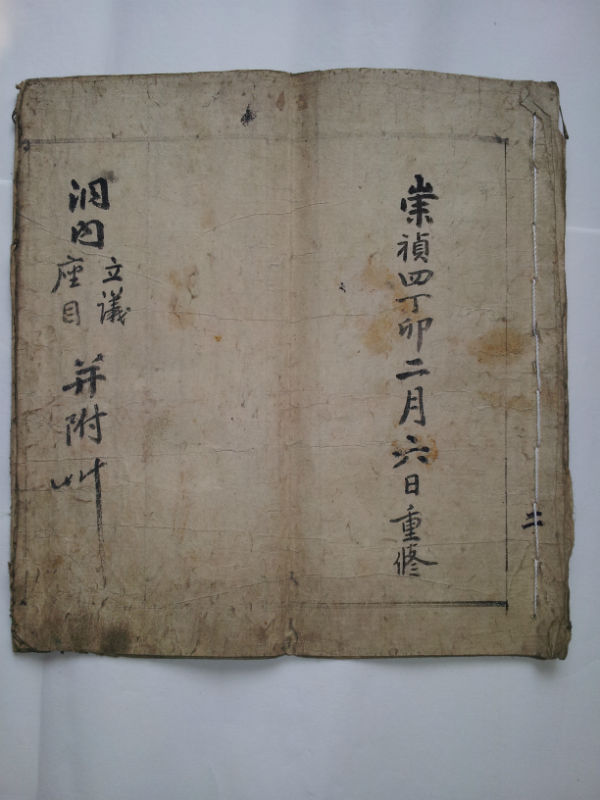 崇禎四丁卯二月六日重修
二
洞內
立議
座目
并附艸